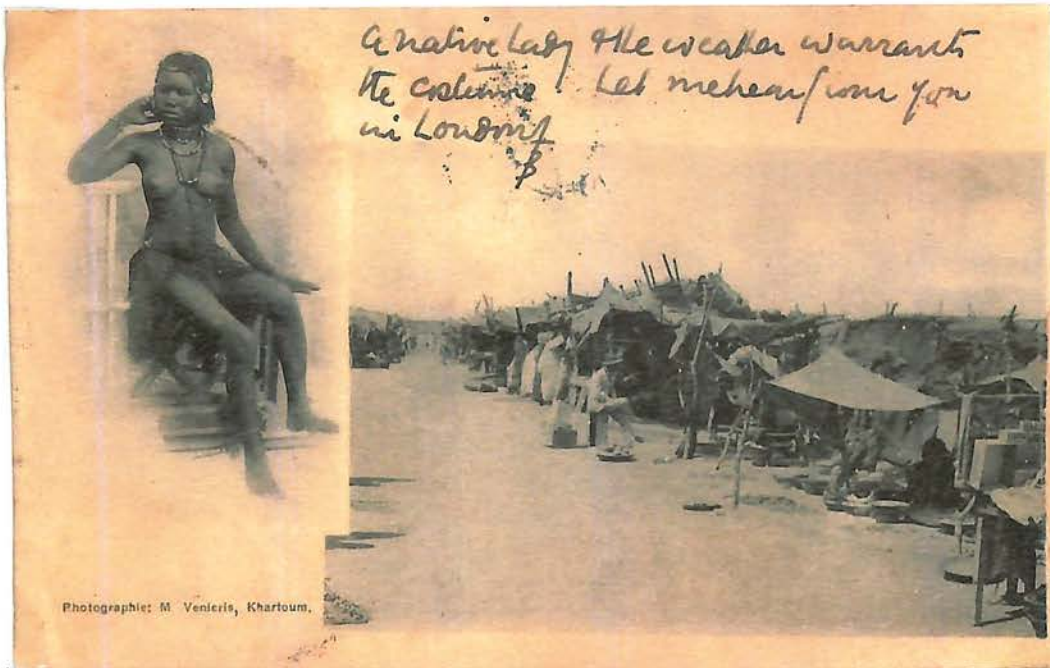 A native lady & the weather warrants
the costume Let me hear from you
in London
Photographie: M Venieris, Khartoum.